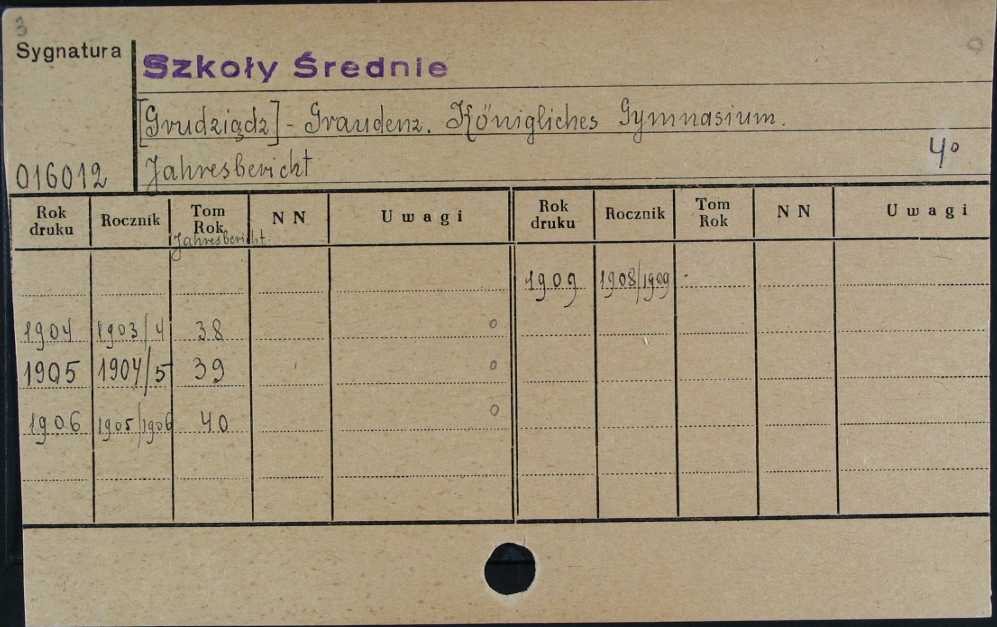 3
Sygnatura
Szkoły Średnie
[Grudziądz] - Graudenz. Königliches Gymnasium.
4°
016012
Jahresbericht
Rok druku Rocznik Tom Rok NN Uwagi Rok druku Rocznik Tom Rok NN Uwagi
Jahresbericht.
1909 1908/1909
1904 1903/4 38 o
1905 1904/5 39 o
1906 1905/1906 40 o